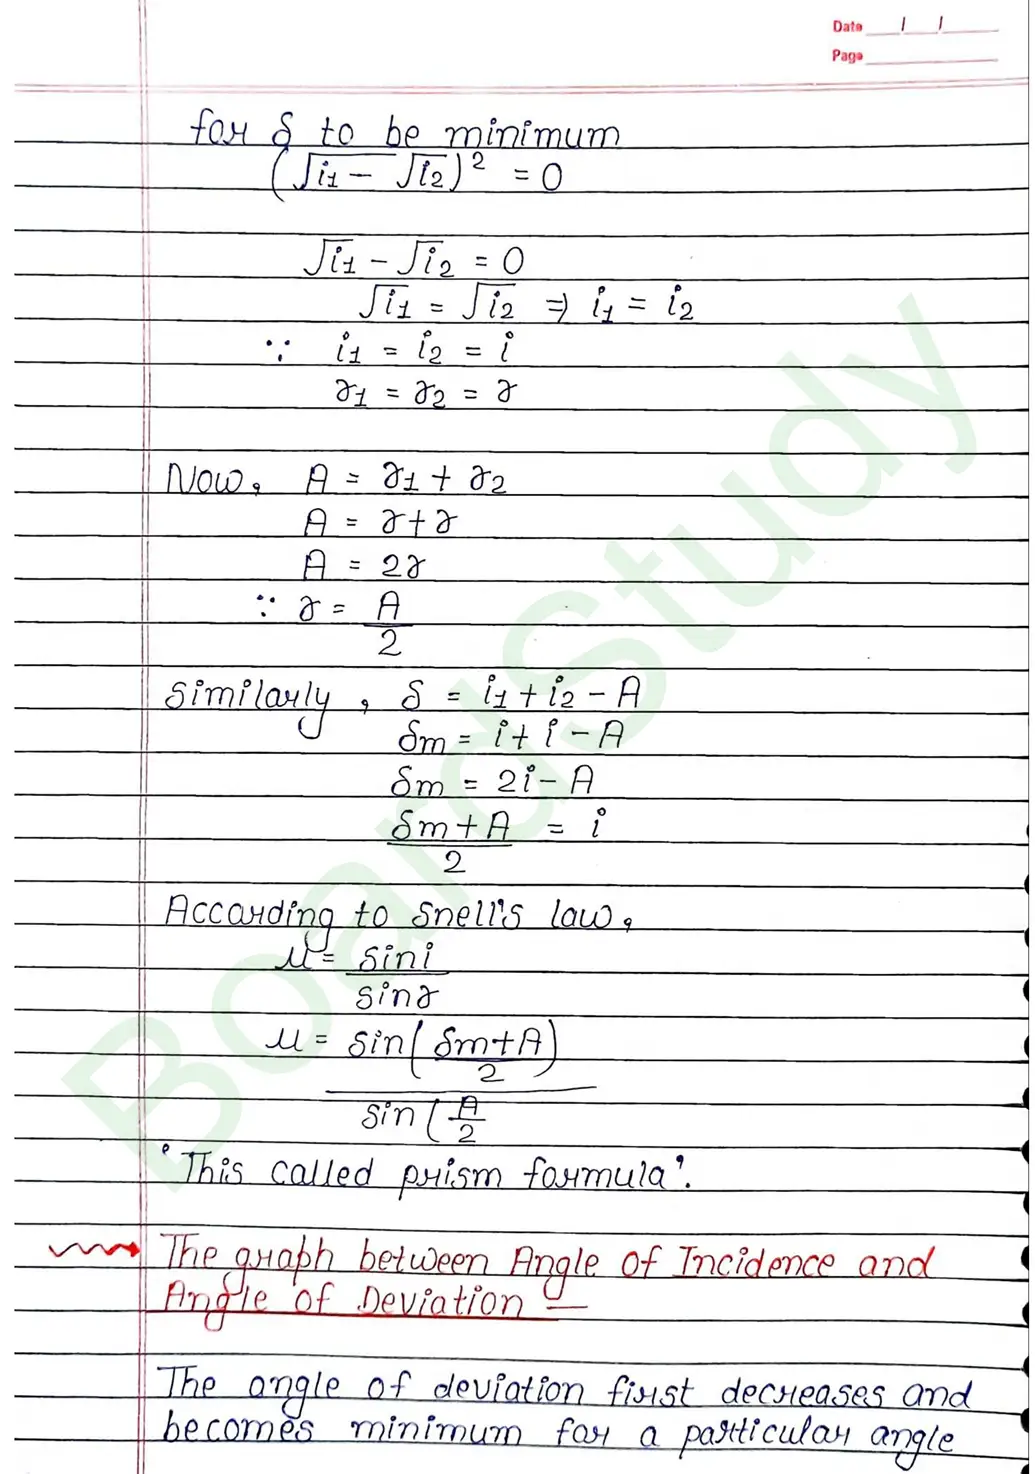 Date / /
Page
for δ to be minimum
(√i1 - √i2)² = 0
√i1 - √i2 = 0
√i1 = √i2 ⇒ i1 = i2
∵ i1 = i2 = i
r1 = r2 = r
Now, A = r1 + r2
A = r + r
A = 2r
∵ r = A/2
Similarly, δ = i1 + i2 - A
δm = i + i - A
δm = 2i - A
δm + A / 2 = i
According to Snell's law,
μ = sini / sinr
μ = sin(δm + A / 2) / sin(A/2
'This called prism formula'.
The graph between Angle of Incidence and
Angle of Deviation —
The angle of deviation first decreases and
becomes minimum for a particular angle
BoardStudy